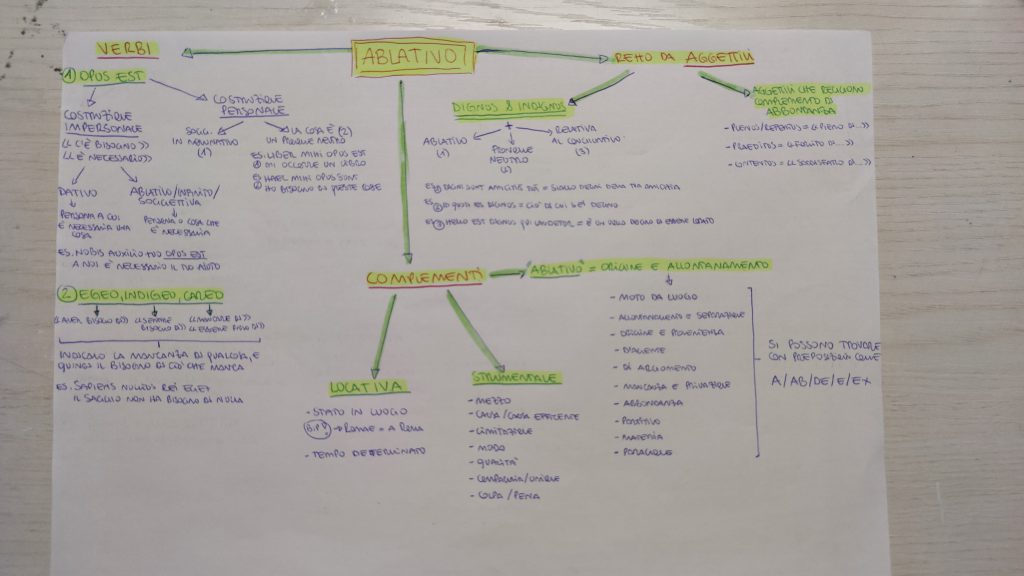 VERBI
ABLATIVO
RETTO DA AGGETTIVI
1 OPUS EST
COSTRUZIONE
IMPERSONALE
<< C'È BISOGNO >>
<< È NECESSARIO >>
DATIVO
PERSONA A CUI
È NECESSARIA UNA
COSA
ABLATIVO/INFINITO/
SOGGETTIVA
PERSONA O COSA CHE
È NECESSARIA
ES. NOBIS AUXILIO TUO OPUS EST
A NOI È NECESSARIO IL TUO AIUTO
COSTRUZIONE
PERSONALE
SOGG.
IN NOMINATIVO
(1)
LA COSA È (2)
UN PRONOME NEUTRO
ES. LIBER MIHI OPUS EST
MI OCCORRE UN LIBRO
ES. HAEC MIHI OPUS SUNT
HO BISOGNO DI QUESTE COSE
2 EGEO, INDIGEO, CAREO
<< AVER BISOGNO DI >>
<< SENTIRE
BISOGNO DI >>
<< MANCARE DI >>
<< ESSERE PRIVO DI >>
INDICANO LA MANCANZA DI QUALCOSA, E
QUINDI IL BISOGNO DI CIÒ CHE MANCA
ES. SAPIENS NULLIUS REI EGET
IL SAGGIO NON HA BISOGNO DI NULLA
DIGNUS & INDIGNUS
+
ABLATIVO
(1)
PRONOME
NEUTRO
(2)
RELATIVA
AL CONGIUNTIVO
(3)
AGGETTIVI CHE REGGONO
COMPLEMENTO DI
ABBONDANZA
- PLENUS/REFERTUS = << PIENO DI... >>
- PRAEDITUS = << FORNITO DI... >>
- CONTENTUS = << SODDISFATTO DI... >>
COMPLEMENTI
"ABLATIVO" = ORIGINE E ALLONTANAMENTO
- MOTO DA LUOGO
- ALLONTANAMENTO E SEPARAZIONE
- ORIGINE E PROVENIENZA
- D'AGENTE
- DI ARGOMENTO
- MANCANZA E PRIVAZIONE
- ABBONDANZA
- PARTITIVO
- MATERIA
- PARAGONE
SI POSSONO TROVARE
CON PREPOSIZIONI COME
A/AB/DE/E/EX
LOCATIVA
- STATO IN LUOGO
→ ROMAE = A ROMA
- TEMPO DETERMINATO
STRUMENTALE
- MEZZO
- CAUSA/CAUSA EFFICIENTE
- LIMITAZIONE
- MODO
- QUALITÀ
- COMPAGNIA/UNIONE
- COLPA/PENA